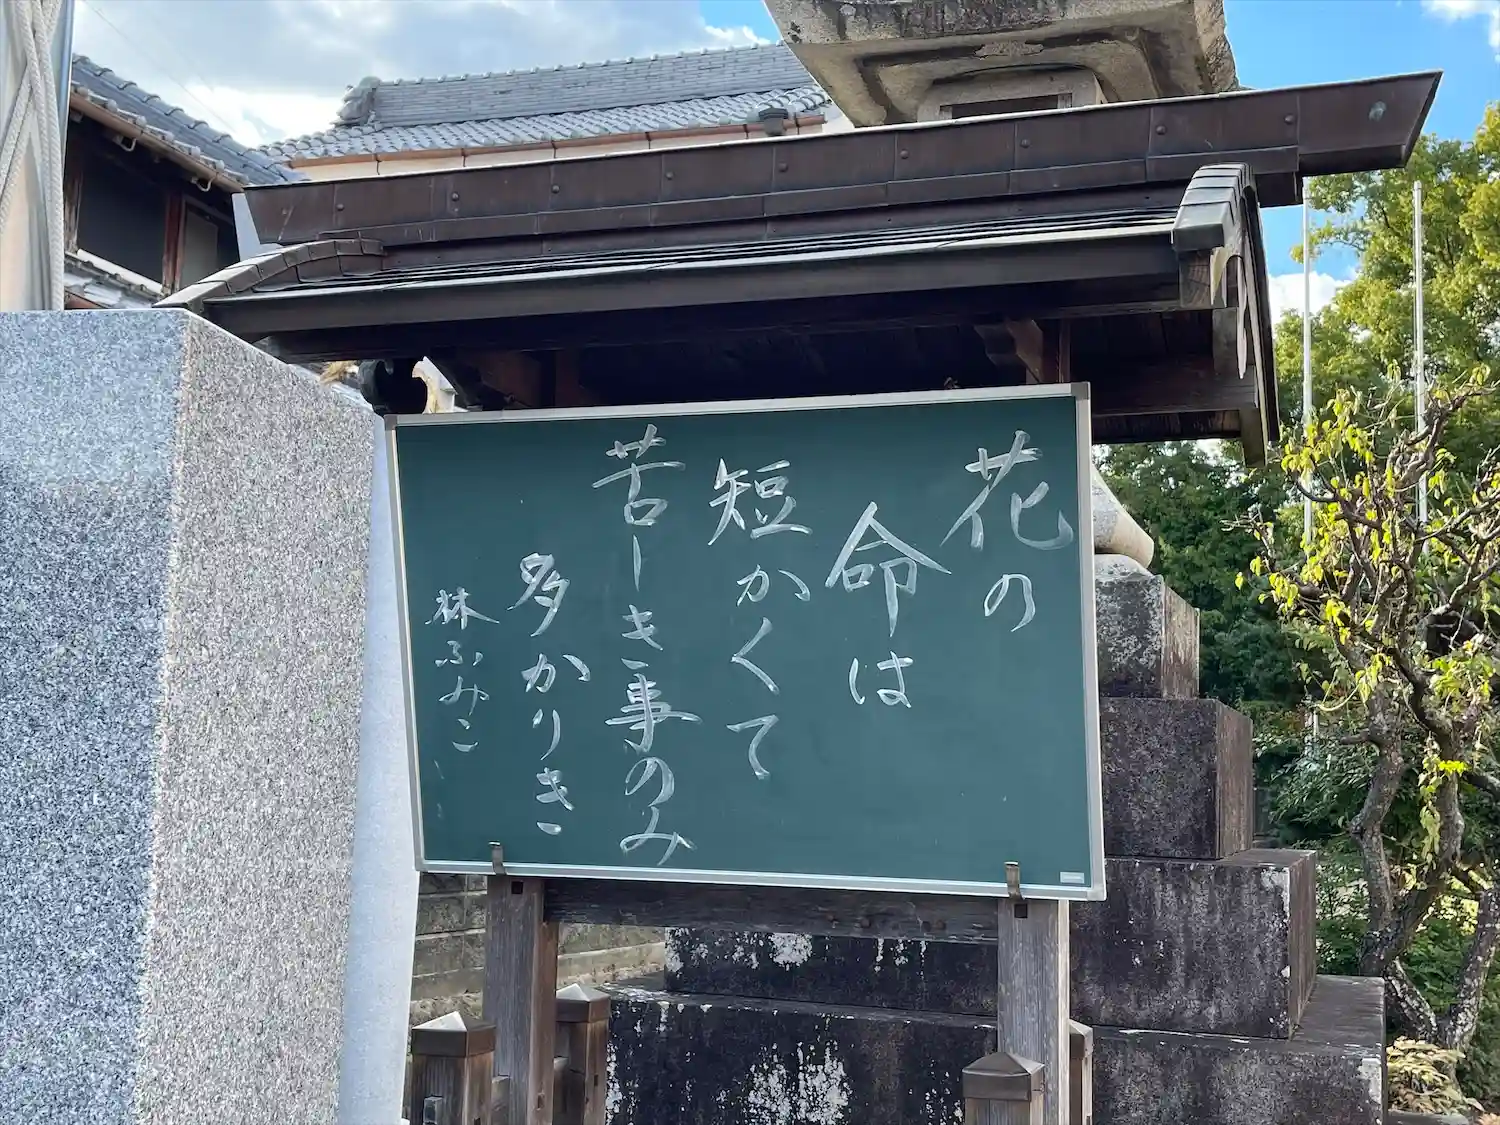 花の
命は
短かくて
苦しき事のみ
多かりき
林ふみこ